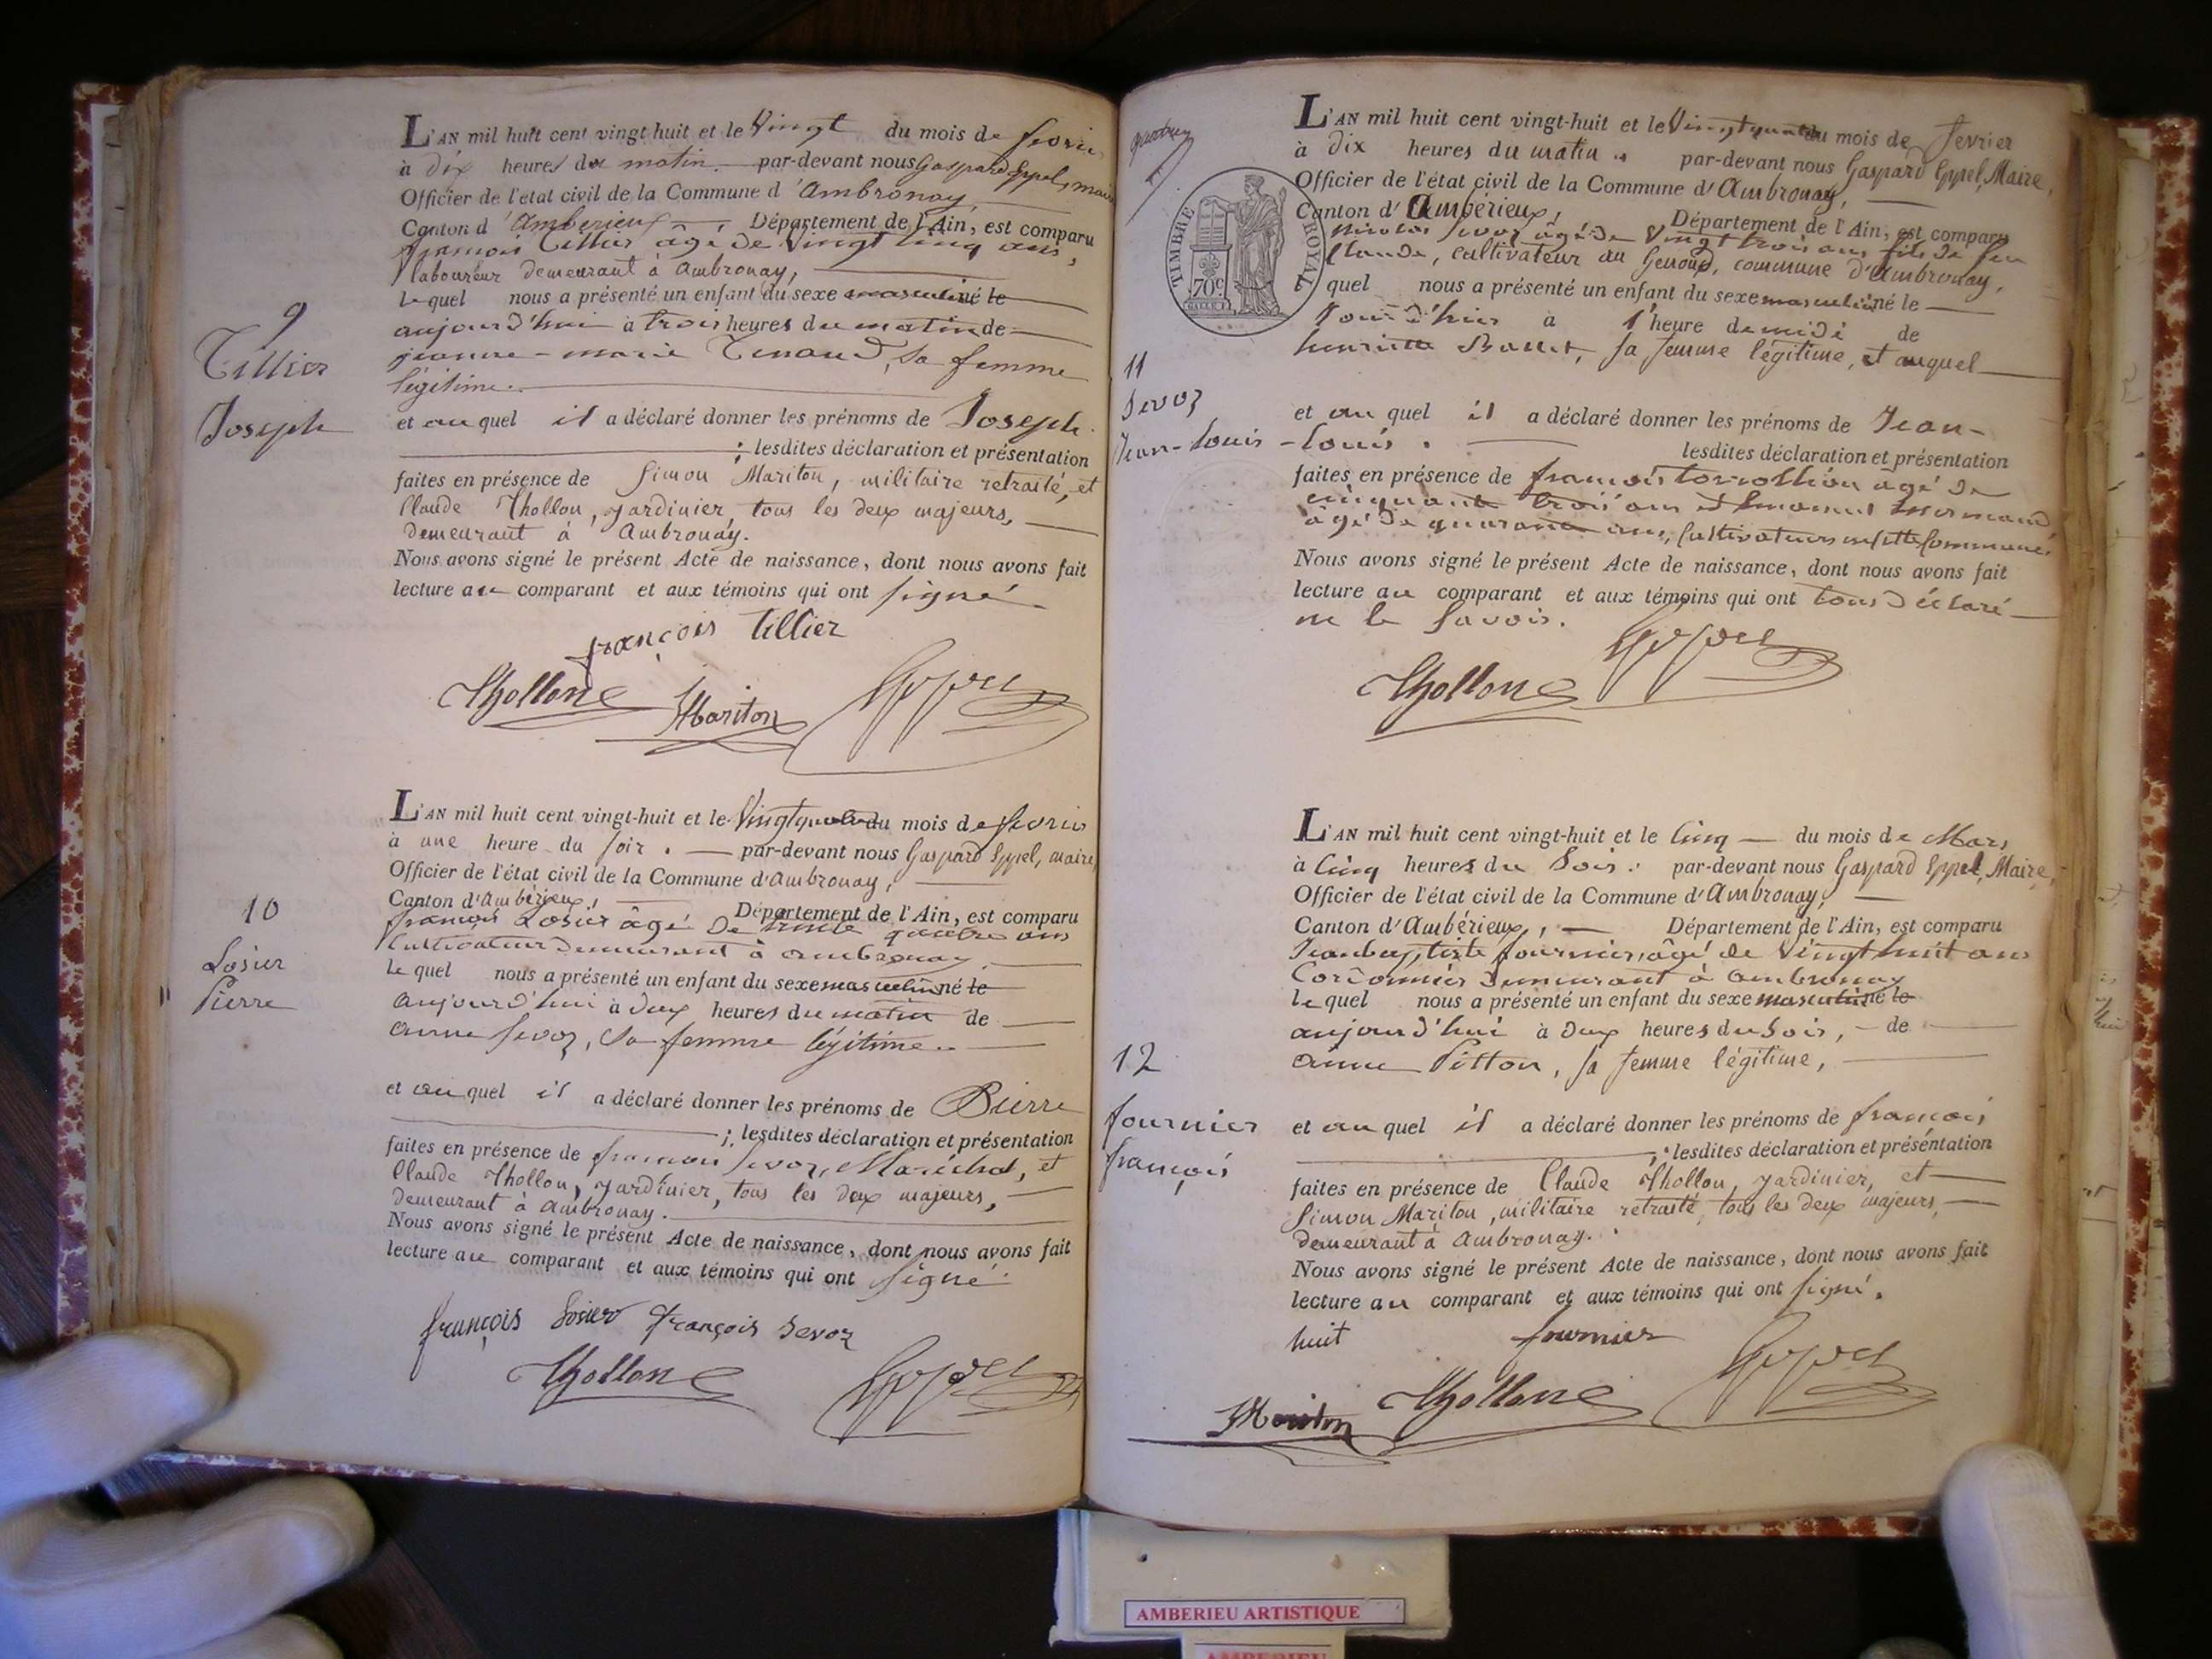 L'AN mil huit cent vingt-huit et le Vingt du mois de fevrier
à dix heures du matin. par-devant nous Gaspard Eppel, maire
Officier de l'état civil de la Commune d'Ambronay,
Canton d'Amberieux Département de l'Ain, est comparu
françois Tillier âgé de Vingt cinq ans,
laboureur demeurant à Ambronay,
lequel nous a présenté un enfant du sexe masculin né le
aujourd'hui à trois heures du matin de
jeanne-marie Tenaud, sa femme
légitime.
et au quel il a déclaré donner les prénoms de Joseph.
; lesdites déclaration et présentation
faites en présence de Simon Mariton, militaire retraité, et
Claude Thollon, jardinier, tous les deux majeurs,
demeurant à Ambronay.
Nous avons signé le présent Acte de naissance, dont nous avons fait
lecture au comparant et aux témoins qui ont signé.
françois tillier
Thollon
Mariton
Eppel
9
Tillier
Joseph
L'AN mil huit cent vingt-huit et le Vingtquatre du mois de fevrier
à une heure du soir. par-devant nous Gaspard Eppel, maire,
Officier de l'état civil de la Commune d'Ambronay,
Canton d'Ambérieux, Département de l'Ain, est comparu
françois Losier âgé de trente quatre ans
Cultivateur demeurant à ambronay.
le quel nous a présenté un enfant du sexe masculin né le
aujourd'hui à deux heures du matin de
anne Sevoz, sa femme légitime.
et au quel il a déclaré donner les prénoms de Pierre
; lesdites déclaration et présentation
faites en présence de françois Sevoz, Maréchal, et
Claude Thollon, jardinier, tous les deux majeurs,
demeurant à Ambronay.
Nous avons signé le présent Acte de naissance, dont nous avons fait
lecture au comparant et aux témoins qui ont signé.
françois Losier françois Sevoz
Thollon Eppel
10
Losier
Pierre
TIMBRE ROYAL
70c
L'AN mil huit cent vingt-huit et le Vingtquatre du mois de fevrier
à dix heures du matin. par-devant nous Gaspard Eppel, Maire,
Officier de l'état civil de la Commune d'Ambronay,
Canton d'Amberieux, Département de l'Ain, est comparu
Nicolas Sevoz âgé de Vingt trois ans fils de feu
Claude, cultivateur au Genoud, commune d'Ambronay,
quel nous a présenté un enfant du sexe masculin né le
jour d'hier à 1 heure de midi de
henriette, sa femme légitime, et auquel
et au quel il a déclaré donner les prénoms de Jean-
Louis. lesdites déclaration et présentation
faites en présence de françois âgé de
cinquante trois ans et
âgé de quarante ans, Cultivateurs
Nous avons signé le présent Acte de naissance, dont nous avons fait
lecture au comparant et aux témoins qui ont tous déclaré
ne le Savoir.
Thollon Eppel
11
Sevoz
Jean-Louis
L'AN mil huit cent vingt-huit et le Cinq du mois de Mars
à Cinq heures du Soir. par-devant nous Gaspard Eppel, Maire,
Officier de l'état civil de la Commune d'Ambronay,
Canton d'Ambérieux, Département de l'Ain, est comparu
Jeanbaptiste fournier, âgé de Vingt huit ans
Cordonnier demeurant à ambronay
le quel nous a présenté un enfant du sexe masculin né le
aujourd'hui à deux heures du Soir, de
anne Pitton, sa femme légitime,
et au quel il a déclaré donner les prénoms de françois
; lesdites déclaration et présentation
faites en présence de Claude Thollon, jardinier, et
Simon Mariton, militaire retraité, tous les deux majeurs,
demeurant à Ambronay.
Nous avons signé le présent Acte de naissance, dont nous avons fait
lecture au comparant et aux témoins qui ont signé.
huit fournier
Mariton Thollon Eppel
12
fournier
françois
AMBERIEU ARTISTIQUE
AMBERIEU